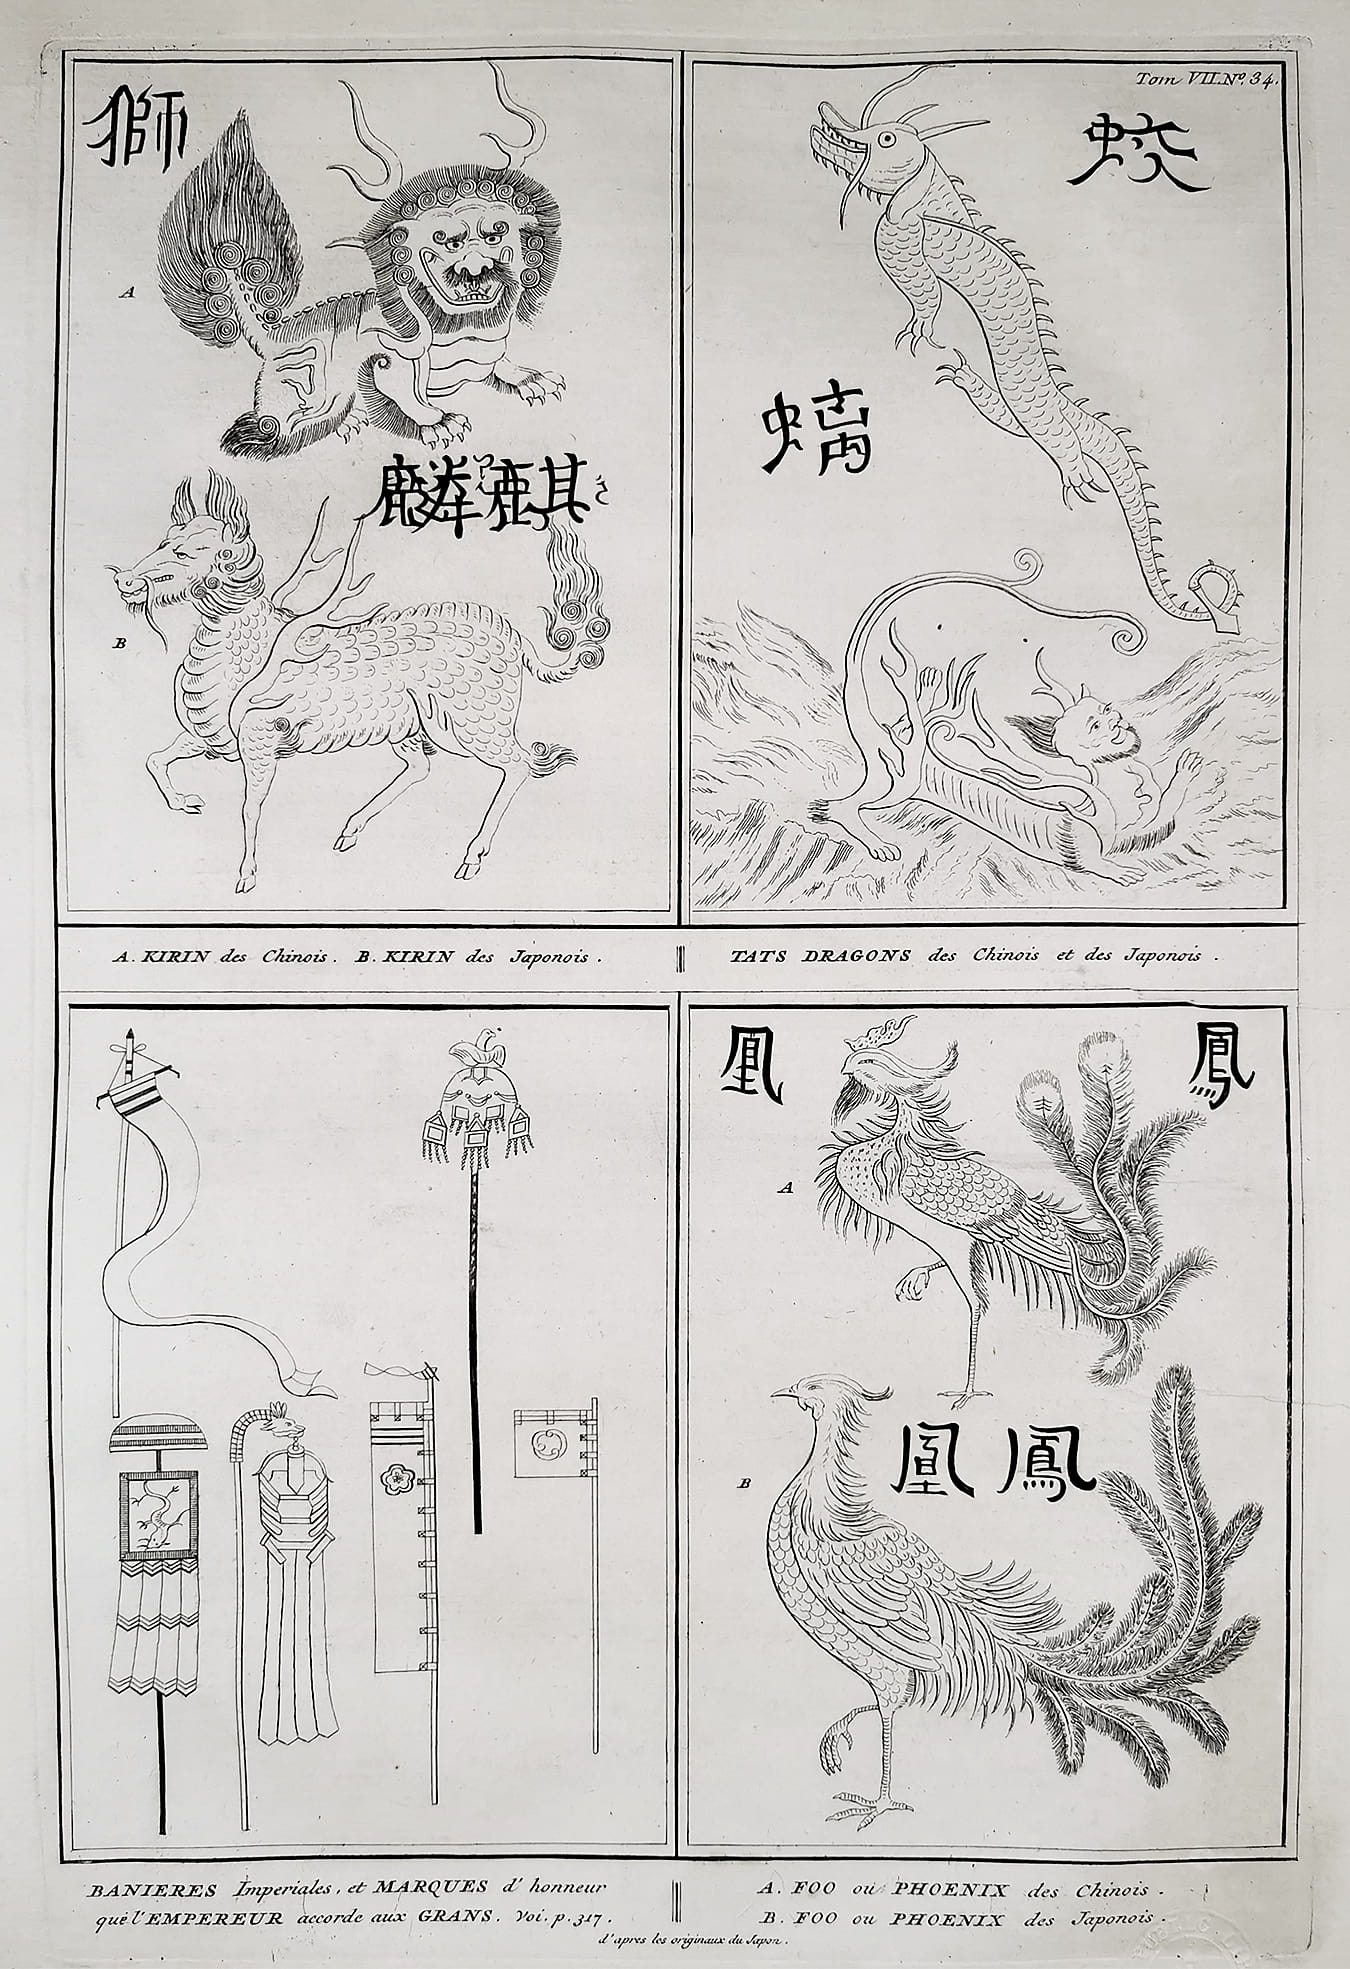 Tom VII. Nº. 34.
獅
A
麒麟
B
蛟
螭
A. KIRIN des Chinois. B. KIRIN des Japonois.
TATS DRAGONS des Chinois et des Japonois.
凰
鳳
A
鳳凰
B
BANIERES Imperiales, et MARQUES d'honneur
que l'EMPEREUR accorde aux GRANS. Voi. p. 317.
A. FOO ou PHOENIX des Chinois.
B. FOO ou PHOENIX des Japonois.
d'apres les originaux du Japon.